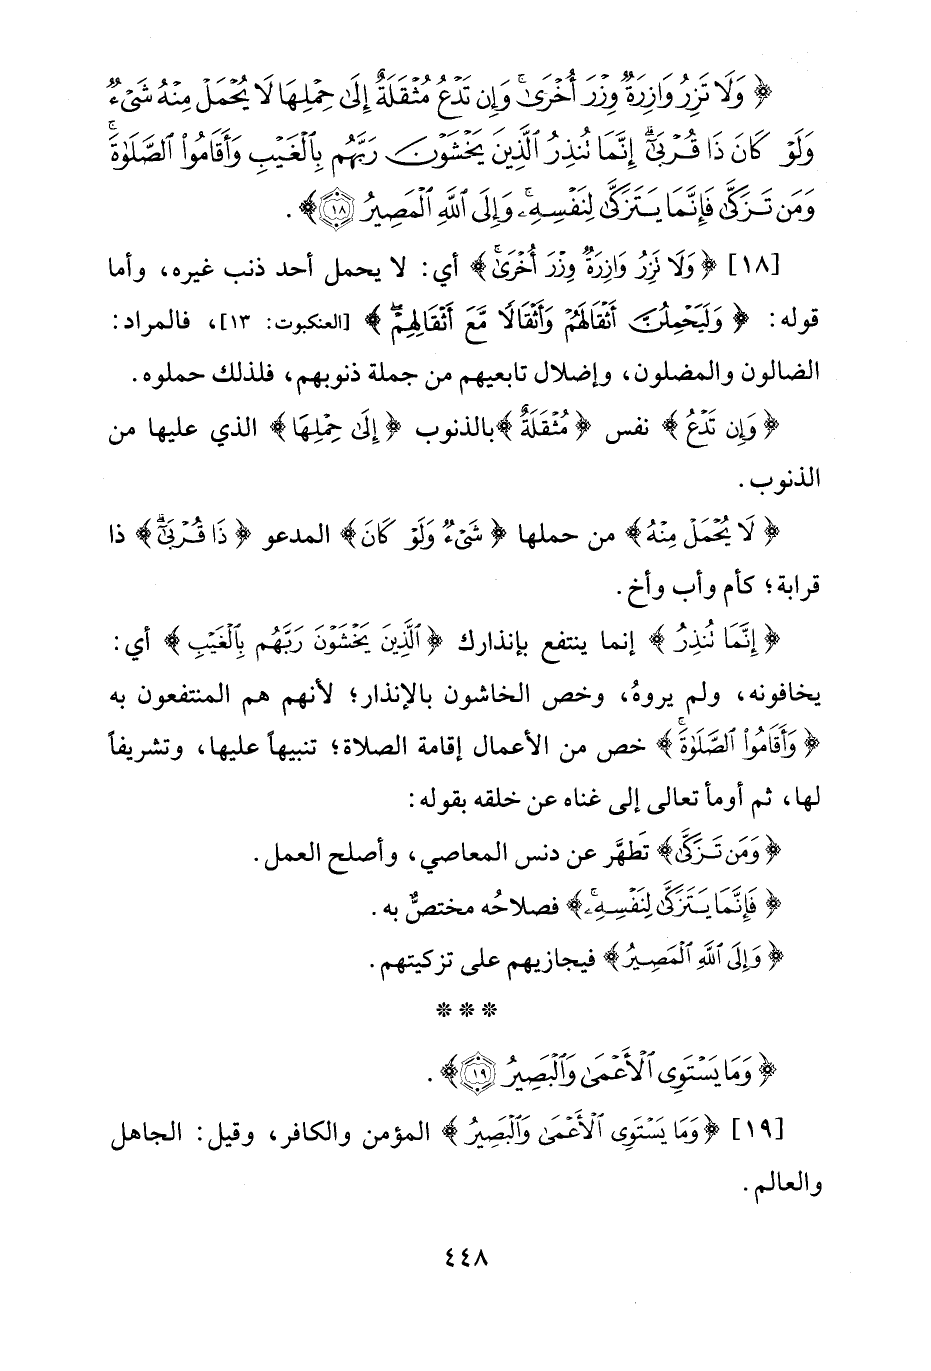 ﴿ وَلَا تَزِرُ وَازِرَةٌ وِزْرَ أُخْرَىٰ ۚ وَإِن تَدْعُ مُثْقَلَةٌ إِلَىٰ حِمْلِهَا لَا يُحْمَلْ مِنْهُ شَيْءٌ
وَلَوْ كَانَ ذَا قُرْبَىٰٓ ۗ إِنَّمَا تُنذِرُ ٱلَّذِينَ يَخْشَوْنَ رَبَّهُم بِٱلْغَيْبِ وَأَقَامُوا۟ ٱلصَّلَوٰةَ ۚ
وَمَن تَزَكَّىٰ فَإِنَّمَا يَتَزَكَّىٰ لِنَفْسِهِۦ ۚ وَإِلَى ٱللَّهِ ٱلْمَصِيرُ ١٨ ﴾ .
[١٨] ﴿ وَلَا تَزِرُ وَازِرَةٌ وِزْرَ أُخْرَىٰ ۚ ﴾ أي: لا يحمل أحد ذنب غيره، وأما
قوله: ﴿ وَلَيَحْمِلُنَّ أَثْقَالَهُمْ وَأَثْقَالًا مَّعَ أَثْقَالِهِمْ ۖ ﴾ [العنكبوت: ١٣]، فالمراد:
الضالون والمضلون، وإضلال تابعيهم من جملة ذنوبهم، فلذلك حملوه.
﴿ وَإِن تَدْعُ ﴾ نفس ﴿ مُثْقَلَةٌ ﴾ بالذنوب ﴿ إِلَىٰ حِمْلِهَا ﴾ الذي عليها من
الذنوب.
﴿ لَا يُحْمَلْ مِنْهُ ﴾ من حملها ﴿ شَيْءٌ وَلَوْ كَانَ ﴾ المدعو ﴿ ذَا قُرْبَىٰٓ ۗ ﴾ ذا
قرابة؛ كأم وأب وأخ.
﴿ إِنَّمَا تُنذِرُ ﴾ إنما ينتفع بإنذارك ﴿ ٱلَّذِينَ يَخْشَوْنَ رَبَّهُم بِٱلْغَيْبِ ﴾ أي:
يخافونه، ولم يروهُ، وخص الخاشون بالإنذار؛ لأنهم هم المنتفعون به
﴿ وَأَقَامُوا۟ ٱلصَّلَوٰةَ ۚ ﴾ خص من الأعمال إقامة الصلاة؛ تنبيهاً عليها، وتشريفاً
لها، ثم أومأ تعالى إلى غناه عن خلقه بقوله:
﴿ وَمَن تَزَكَّىٰ ﴾ تَطَهَّر عن دنس المعاصي، وأصلح العمل.
﴿ فَإِنَّمَا يَتَزَكَّىٰ لِنَفْسِهِۦ ۚ ﴾ فصلاحُه مختصٌّ به.
﴿ وَإِلَى ٱللَّهِ ٱلْمَصِيرُ ﴾ فيجازيهم على تزكيتهم.
* * *
﴿ وَمَا يَسْتَوِى ٱلْأَعْمَىٰ وَٱلْبَصِيرُ ١٩ ﴾ .
[١٩] ﴿ وَمَا يَسْتَوِى ٱلْأَعْمَىٰ وَٱلْبَصِيرُ ﴾ المؤمن والكافر، وقيل: الجاهل
والعالم.
٤٤٨